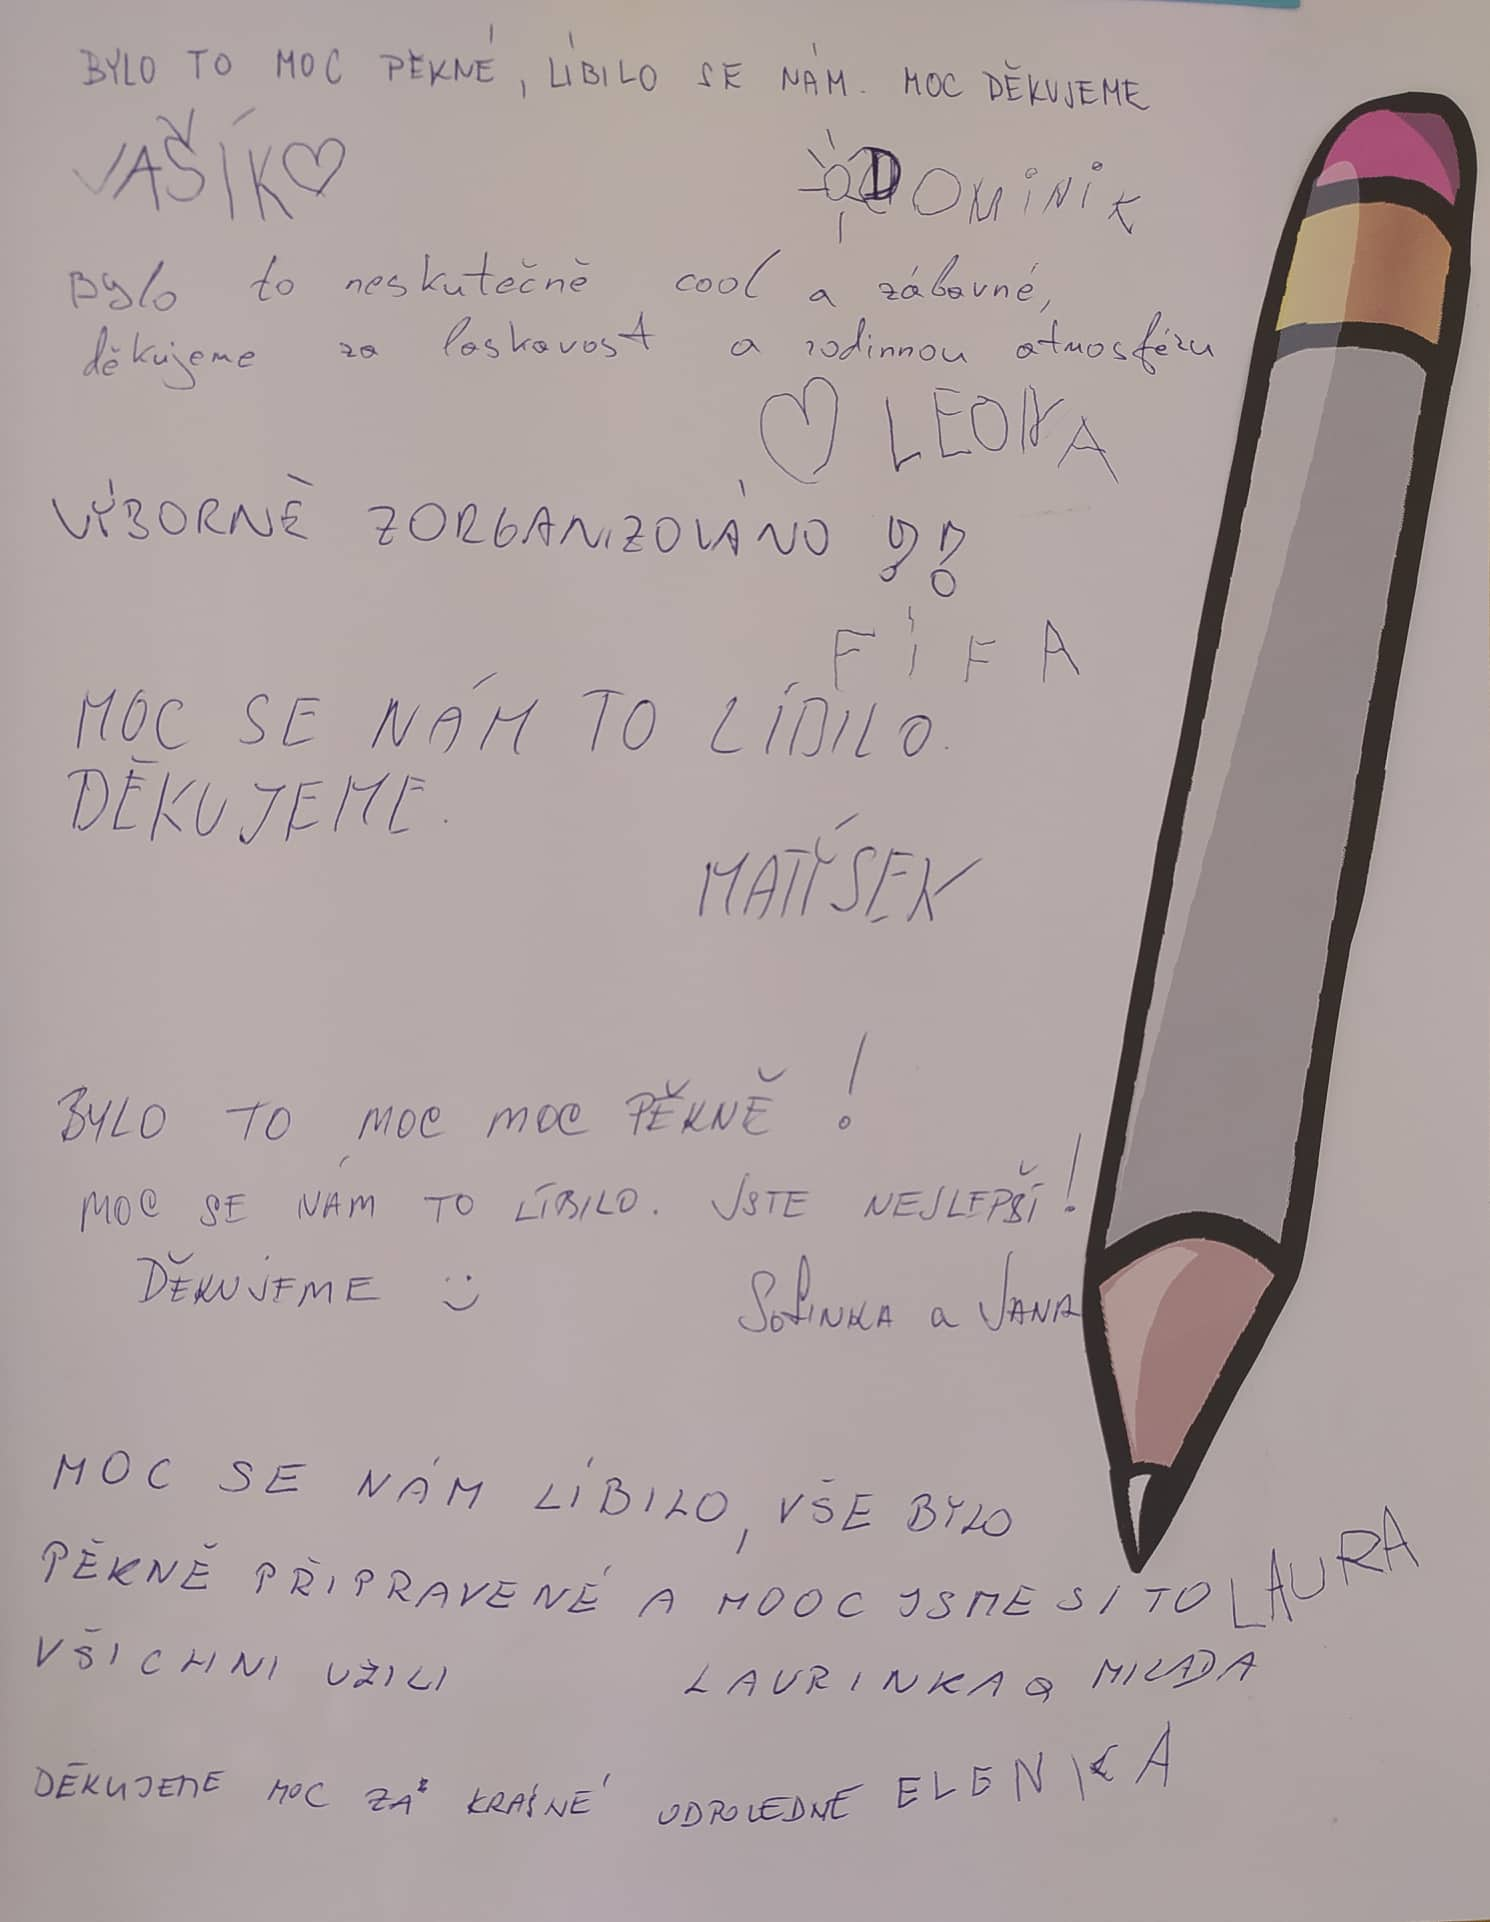 BYLO TO MOC PĚKNÉ, LÍBILO SE NÁM. MOC DĚKUJEME
VAŠÍK
DOMINIK
Bylo to neskutečně cool a zábavné,
děkujeme za laskavost a rodinnou atmosféru
LEONA
VÝBORNĚ ZORGANIZOVÁNO !!
FÍFA
MOC SE NÁM TO LÍBILO.
DĚKUJEME.
MATÝSEK
BYLO TO MOC MOC PĚKNĚ!
MOC SE NÁM TO LÍBILO. JSTE NEJLEPŠÍ!
DĚKUJEME :)
SOFINKA a JANA
MOC SE NÁM LÍBILO, VŠE BYLO
PĚKNĚ PŘIPRAVENÉ A MOOC JSME SI TO
LAURA
VŠICHNI UŽILI LAURINKA a MILADA
DĚKUJEME MOC ZA KRÁSNÉ ODPOLEDNE ELENKA